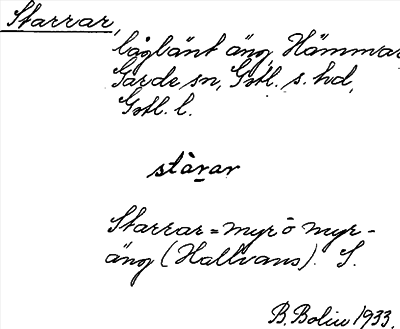 Starrar,
låglänt äng, Hämmvar
Garde sn, Gotl. s. hd,
Gotl. l.
stàrar
Starrar = myr o myr-
äng (Hallvans). S.
B. Bolin 1933.